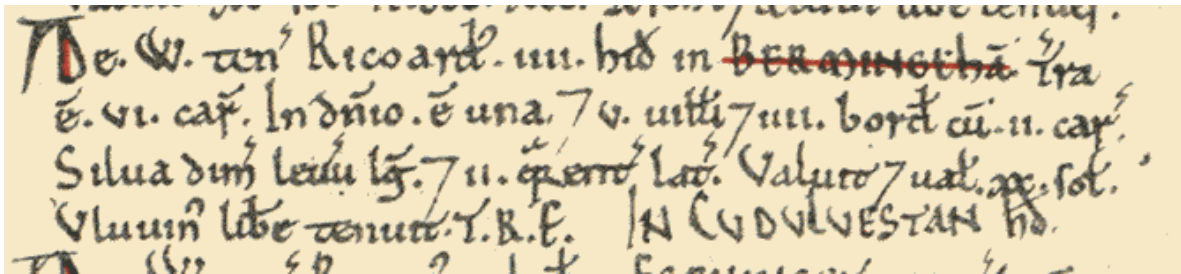 De. W. ten' Ricoard'. iiii. hid' in BERMINGEHĀ. T'ra
ē. vi. car̄. In dn̄io. ē una. ⁊ v. uill'i ⁊ iiii. bord' cū. ii. car'.
Silua dim' leuu' lḡ. ⁊ ii. q̄rent' lat'. Valuit ⁊ ual'. xx. sol'.
Vluuin' libe tenuit. T.R.E. IN CVDVLVESTAN hđ.